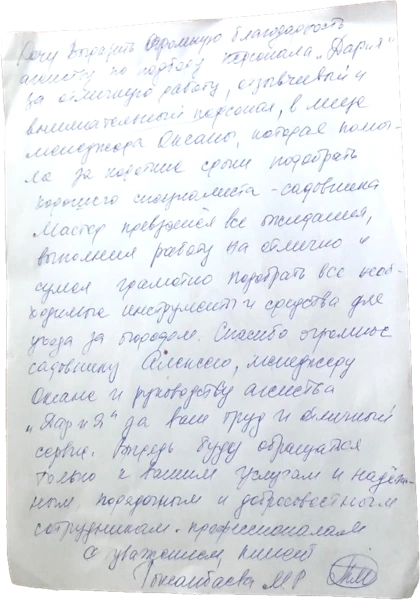 Хочу выразить огромную благодарность
агенству по подбору персонала „Дария"
за отличную работу, отзывчивый и
внимательный персонал, в лице
менеджера Оксаны, которая помог-
ла за короткие сроки подобрать
хорошего специалиста - садовника
Мастер превзошел все ожидания,
выполнил работу на отлично и
сумел грамотно подобрать все необ-
ходимые инструменты и средства для
ухода за огородом. Спасибо огромное
садовнику Алексею, менеджеру
Оксане и руководству агенства
„ДариЯ" за ваш труд и отличный
сервис. Впредь буду обращатся
только к вашим услугам и надёж-
ным, порядочным и добросовестным
сотрудникам - профессионалам
С уважением, клиент
М Р